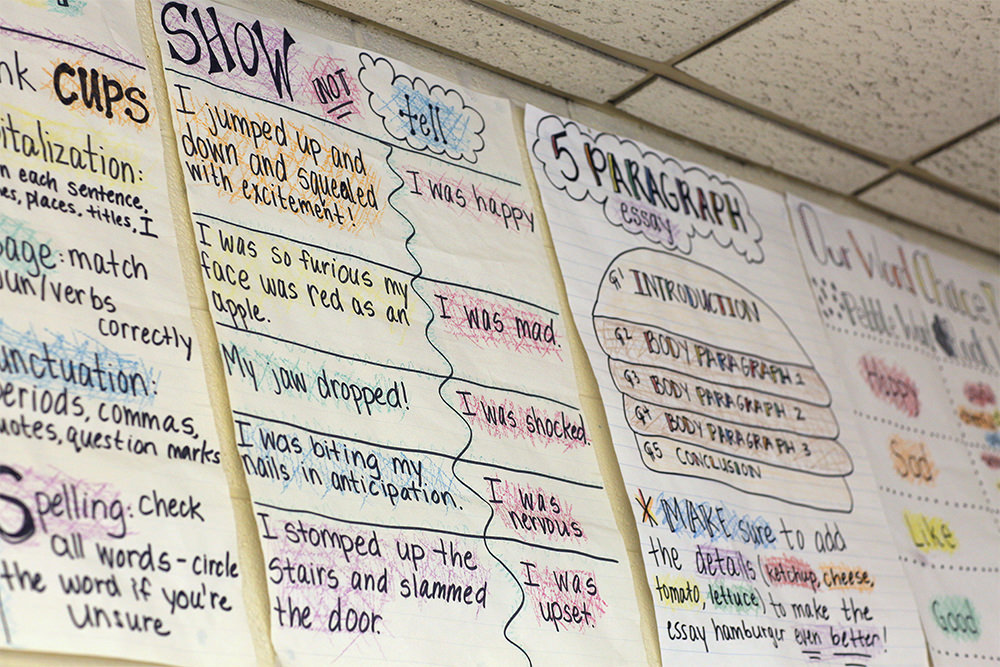 nk CUPS
italization:
n each sentence,
es, places, titles, I
sage: match
oun/verbs
correctly
unctuation:
eriods, commas,
uotes, question marks
Spelling: check
all words - circle
the word if you're
unsure
SHOW NOT tell
I jumped up and
down and squealed
with excitement!
I was happy
I was so furious my
face was red as an
apple.
I was mad.
My jaw dropped!
I was shocked.
I was biting my
nails in anticipation.
I was
nervous
I stomped up the
stairs and slammed
the door.
I was
upset.
5 PARAGRAPH
essay
G1 INTRODUCTION
G2 BODY PARAGRAPH 1
G3 BODY PARAGRAPH 2
G4 BODY PARAGRAPH 3
G5 CONCLUSION
MAKE sure to add
the details (ketchup, cheese,
tomato, lettuce) to make the
essay hamburger even better!
Our Word Choice
Happy
Sad
Like
Good